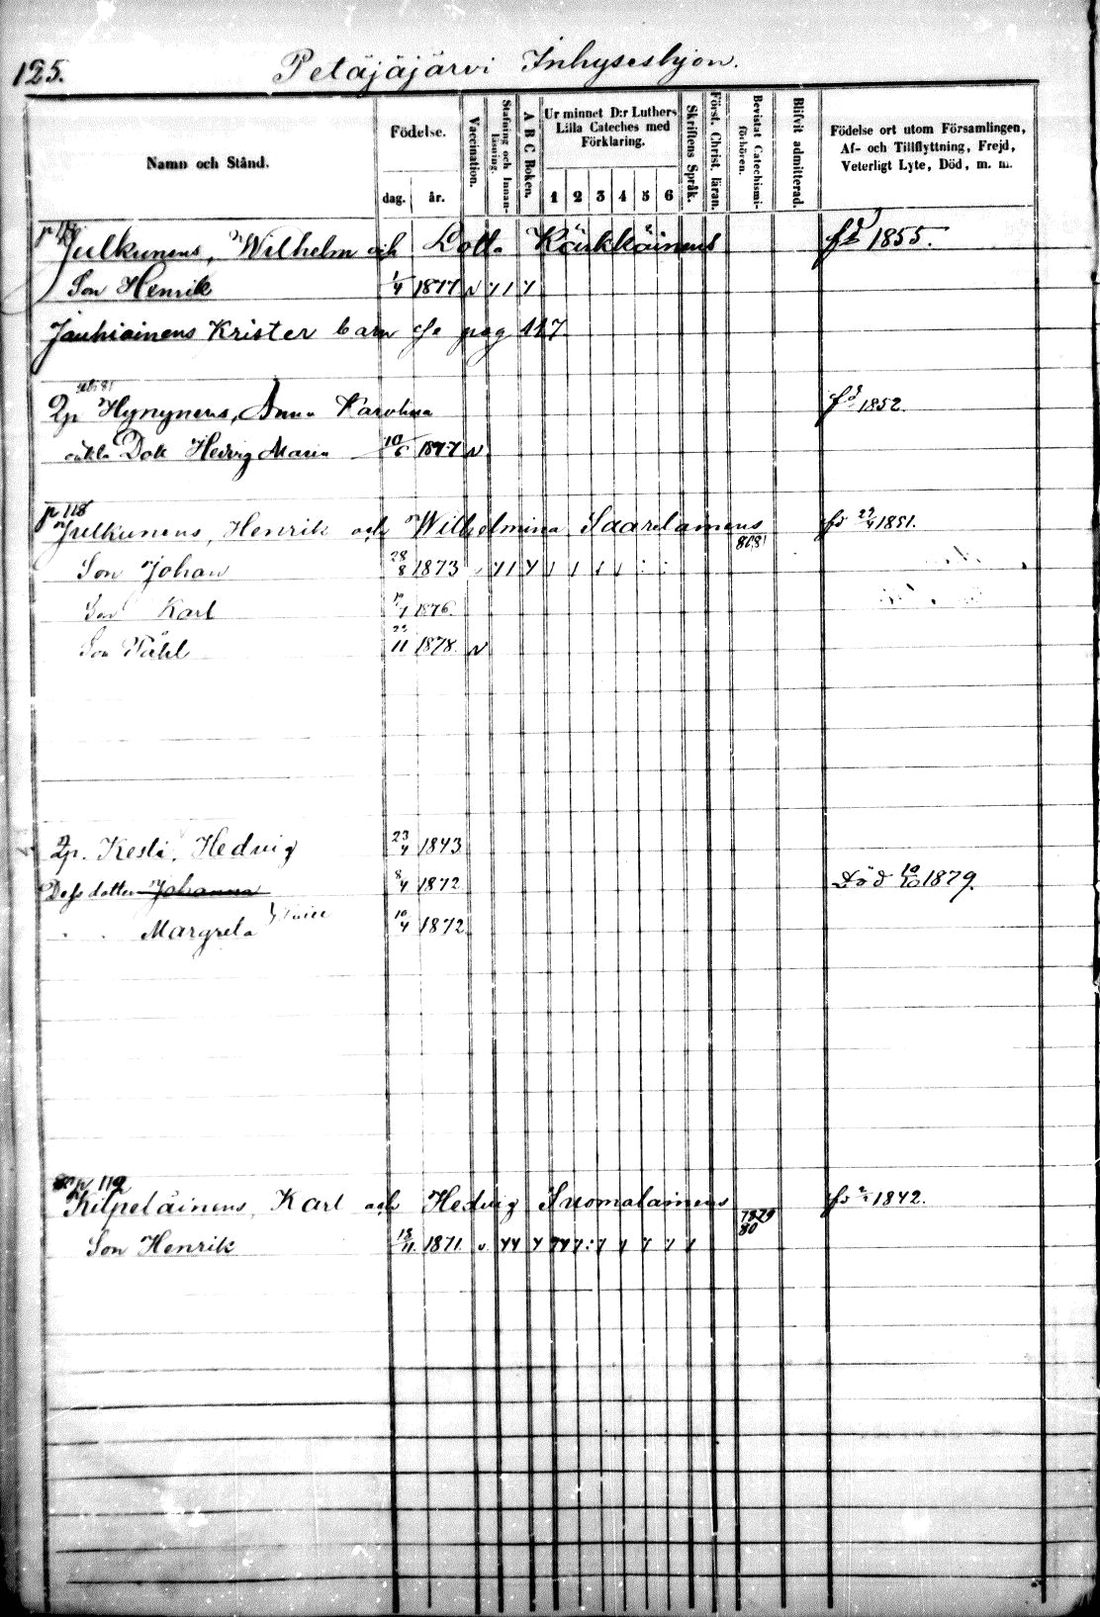 125.
Petäjäjärvi Inhysesbjon.
Namn och Stånd.
Födelse.
dag. år.
Vaccination.
Stafning och Innanläsning.
A B C Boken.
Ur minnet D:r Luthers Lilla Cateches med Förklaring.
1 2 3 4 5 6
Skriftens Språk.
Först. Christ. läran.
Bevistat Catechismiförhören.
Blifvit admitterad.
Födelse ort utom Församlingen,
Af- och Tillflyttning, Frejd,
Veterligt Lyte, Död, m. m.
Julkunens, Wilhelm och Lotta Kärkkäinens fd 1855.
Son Henrik 1/4 1877
Jauhiainens Krister barn pag 117
Hynynens, Anna Karolina fd 1852.
oäkta Dott Hedvig Maria 10/6 1877
p 118
Julkunens, Henrik och Wilhelmina Saarelainens fd 1851.
8081
Son Johan 28/8 1873
Son Karl 1876.
Son Påhl 11 1878.
Kesti, Hedvig 23/4 1843
Dess dotter Johanna 8/4 1872 Död 10/10 1879.
Margreta 10/4 1872
p 119
Kilpeläinens, Karl och Hedvig Suomalainens fd 1842.
7879
80
Son Henrik 18/11 1871